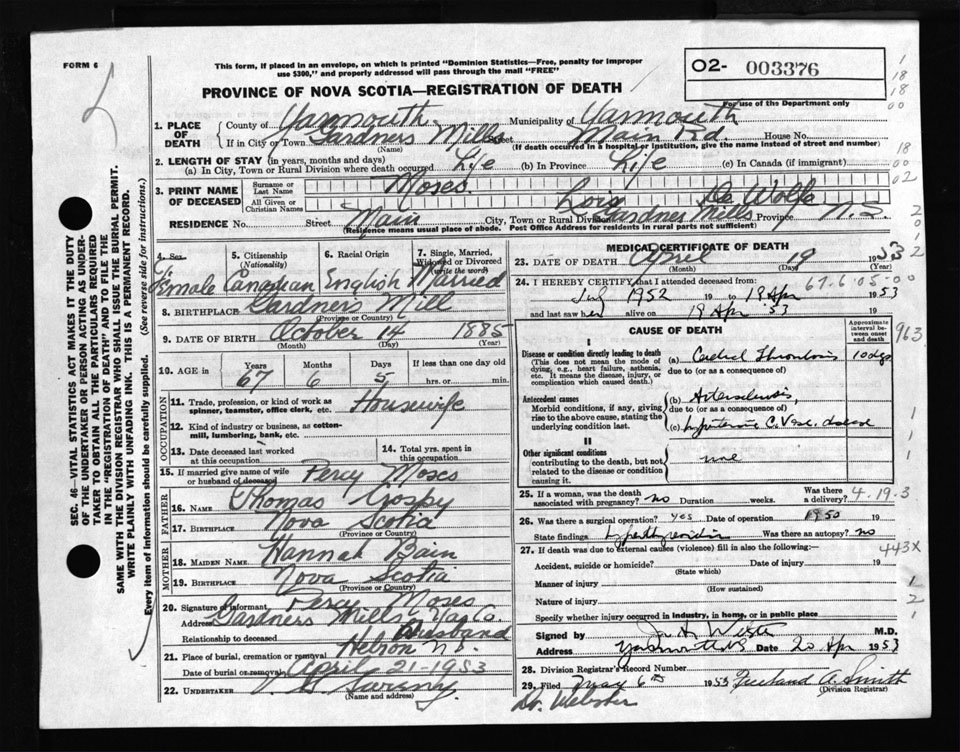 FORM 6
This form, if placed in an envelope, on which is printed "Dominion Statistics—Free, penalty for improper
use $300," and properly addressed will pass through the mail "FREE"
PROVINCE OF NOVA SCOTIA—REGISTRATION OF DEATH
O2- 003376
For use of the Department only
1. PLACE OF DEATH
County of Yarmouth Municipality of Yarmouth
If in City or Town Gardners Mills Street Main Rd. House No.
(Name) (If death occurred in a hospital or institution, give the name instead of street and number)
2. LENGTH OF STAY (in years, months and days)
(a) In City, Town or Rural Division where death occurred Life (b) In Province Life (c) In Canada (if immigrant)
3. PRINT NAME OF DECEASED
Surname or Last Name Moses
All Given or Christian Names Lois De Wolfe
RESIDENCE No. Street Main City, Town or Rural Division Gardners Mills Province N.S.
(Residence means usual place of abode. Post Office Address for residents in rural parts not sufficient)
4. Sex Female
5. Citizenship (Nationality) Canadian
6. Racial Origin English
7. Single, Married, Widowed or Divorced (write the word) Married
8. BIRTHPLACE Gardners Mill
(Province or Country)
9. DATE OF BIRTH October 14 1885
(Month) (Day) (Year)
10. AGE in Years 67 Months 6 Days 5 If less than one day old hrs. or min.
OCCUPATION
11. Trade, profession, or kind of work as spinner, teamster, office clerk, etc. Housewife
12. Kind of industry or business, as cotton-mill, lumbering, bank, etc.
13. Date deceased last worked at this occupation
14. Total yrs. spent in this occupation
15. If married give name of wife or husband of deceased Percy Moses
FATHER
16. NAME Thomas Crosby
17. BIRTHPLACE Nova Scotia
(Province or Country)
MOTHER
18. MAIDEN NAME Hannah Bain
19. BIRTHPLACE Nova Scotia
(Province or Country)
20. Signature of informant Percy Moses
Address Gardners Mills Yar. Co.
Relationship to deceased Husband
21. Place of burial, cremation or removal Hebron N.S.
Date of burial or removal April 21-1953
22. UNDERTAKER V. S. Sweeny
(Name and address)
MEDICAL CERTIFICATE OF DEATH
23. DATE OF DEATH April 19 1953
(Month) (Day) (Year)
24. I HEREBY CERTIFY that I attended deceased from:
July 1952 19 to 19 Apr 1953
and last saw her alive on 19 Apr '53
67-6-05-00
CAUSE OF DEATH
Approximate interval between onset and death
I
Disease or condition directly leading to death (a) Cerebral Thrombosis 10 days
(This does not mean the mode of dying, e.g., heart failure, asthenia, etc. It means the disease, injury, or complication which caused death.)
due to (or as a consequence of)
Antecedent causes (b) Arteriosclerosis,
Morbid conditions, if any, giving rise to the above cause, stating the underlying condition last.
due to (or as a consequence of)
(c) Hypertensive C. Vasc. disease
II
Other significant conditions
contributing to the death, but not related to the disease or condition causing it.
none
25. If a woman, was the death associated with pregnancy? no Duration weeks. Was there a delivery?
4-19-3
26. Was there a surgical operation? yes Date of operation 1950 19
State findings hyperthyroidism Was there an autopsy? no
27. If death was due to external causes (violence) fill in also the following:—
443X
Accident, suicide or homicide? Date of injury 19
(State which)
Manner of injury
(How sustained)
Nature of injury
Specify whether injury occurred in industry, in home, or in public place
Signed by M.D.
Address Yarmouth NS Date 20 Apr 1953
28. Division Registrar's Record Number
29. Filed May 6th 1953 Freeland A. Smith
(Division Registrar)
Dr. Webster
SEC. 46—VITAL STATISTICS ACT MAKES IT THE DUTY
OF THE UNDERTAKER OR PERSON ACTING AS UNDER-
TAKER TO OBTAIN ALL THE PARTICULARS REQUIRED
IN THE "REGISTRATION OF DEATH" AND TO FILE THE
SAME WITH THE DIVISION REGISTRAR WHO SHALL ISSUE THE BURIAL PERMIT.
WRITE PLAINLY WITH UNFADING INK. THIS IS A PERMANENT RECORD.
Every item of information should be carefully supplied. (See reverse side for instructions.)
1
18
18
00
18
00
02
2
0
1
2
963
1
1
1
1
2